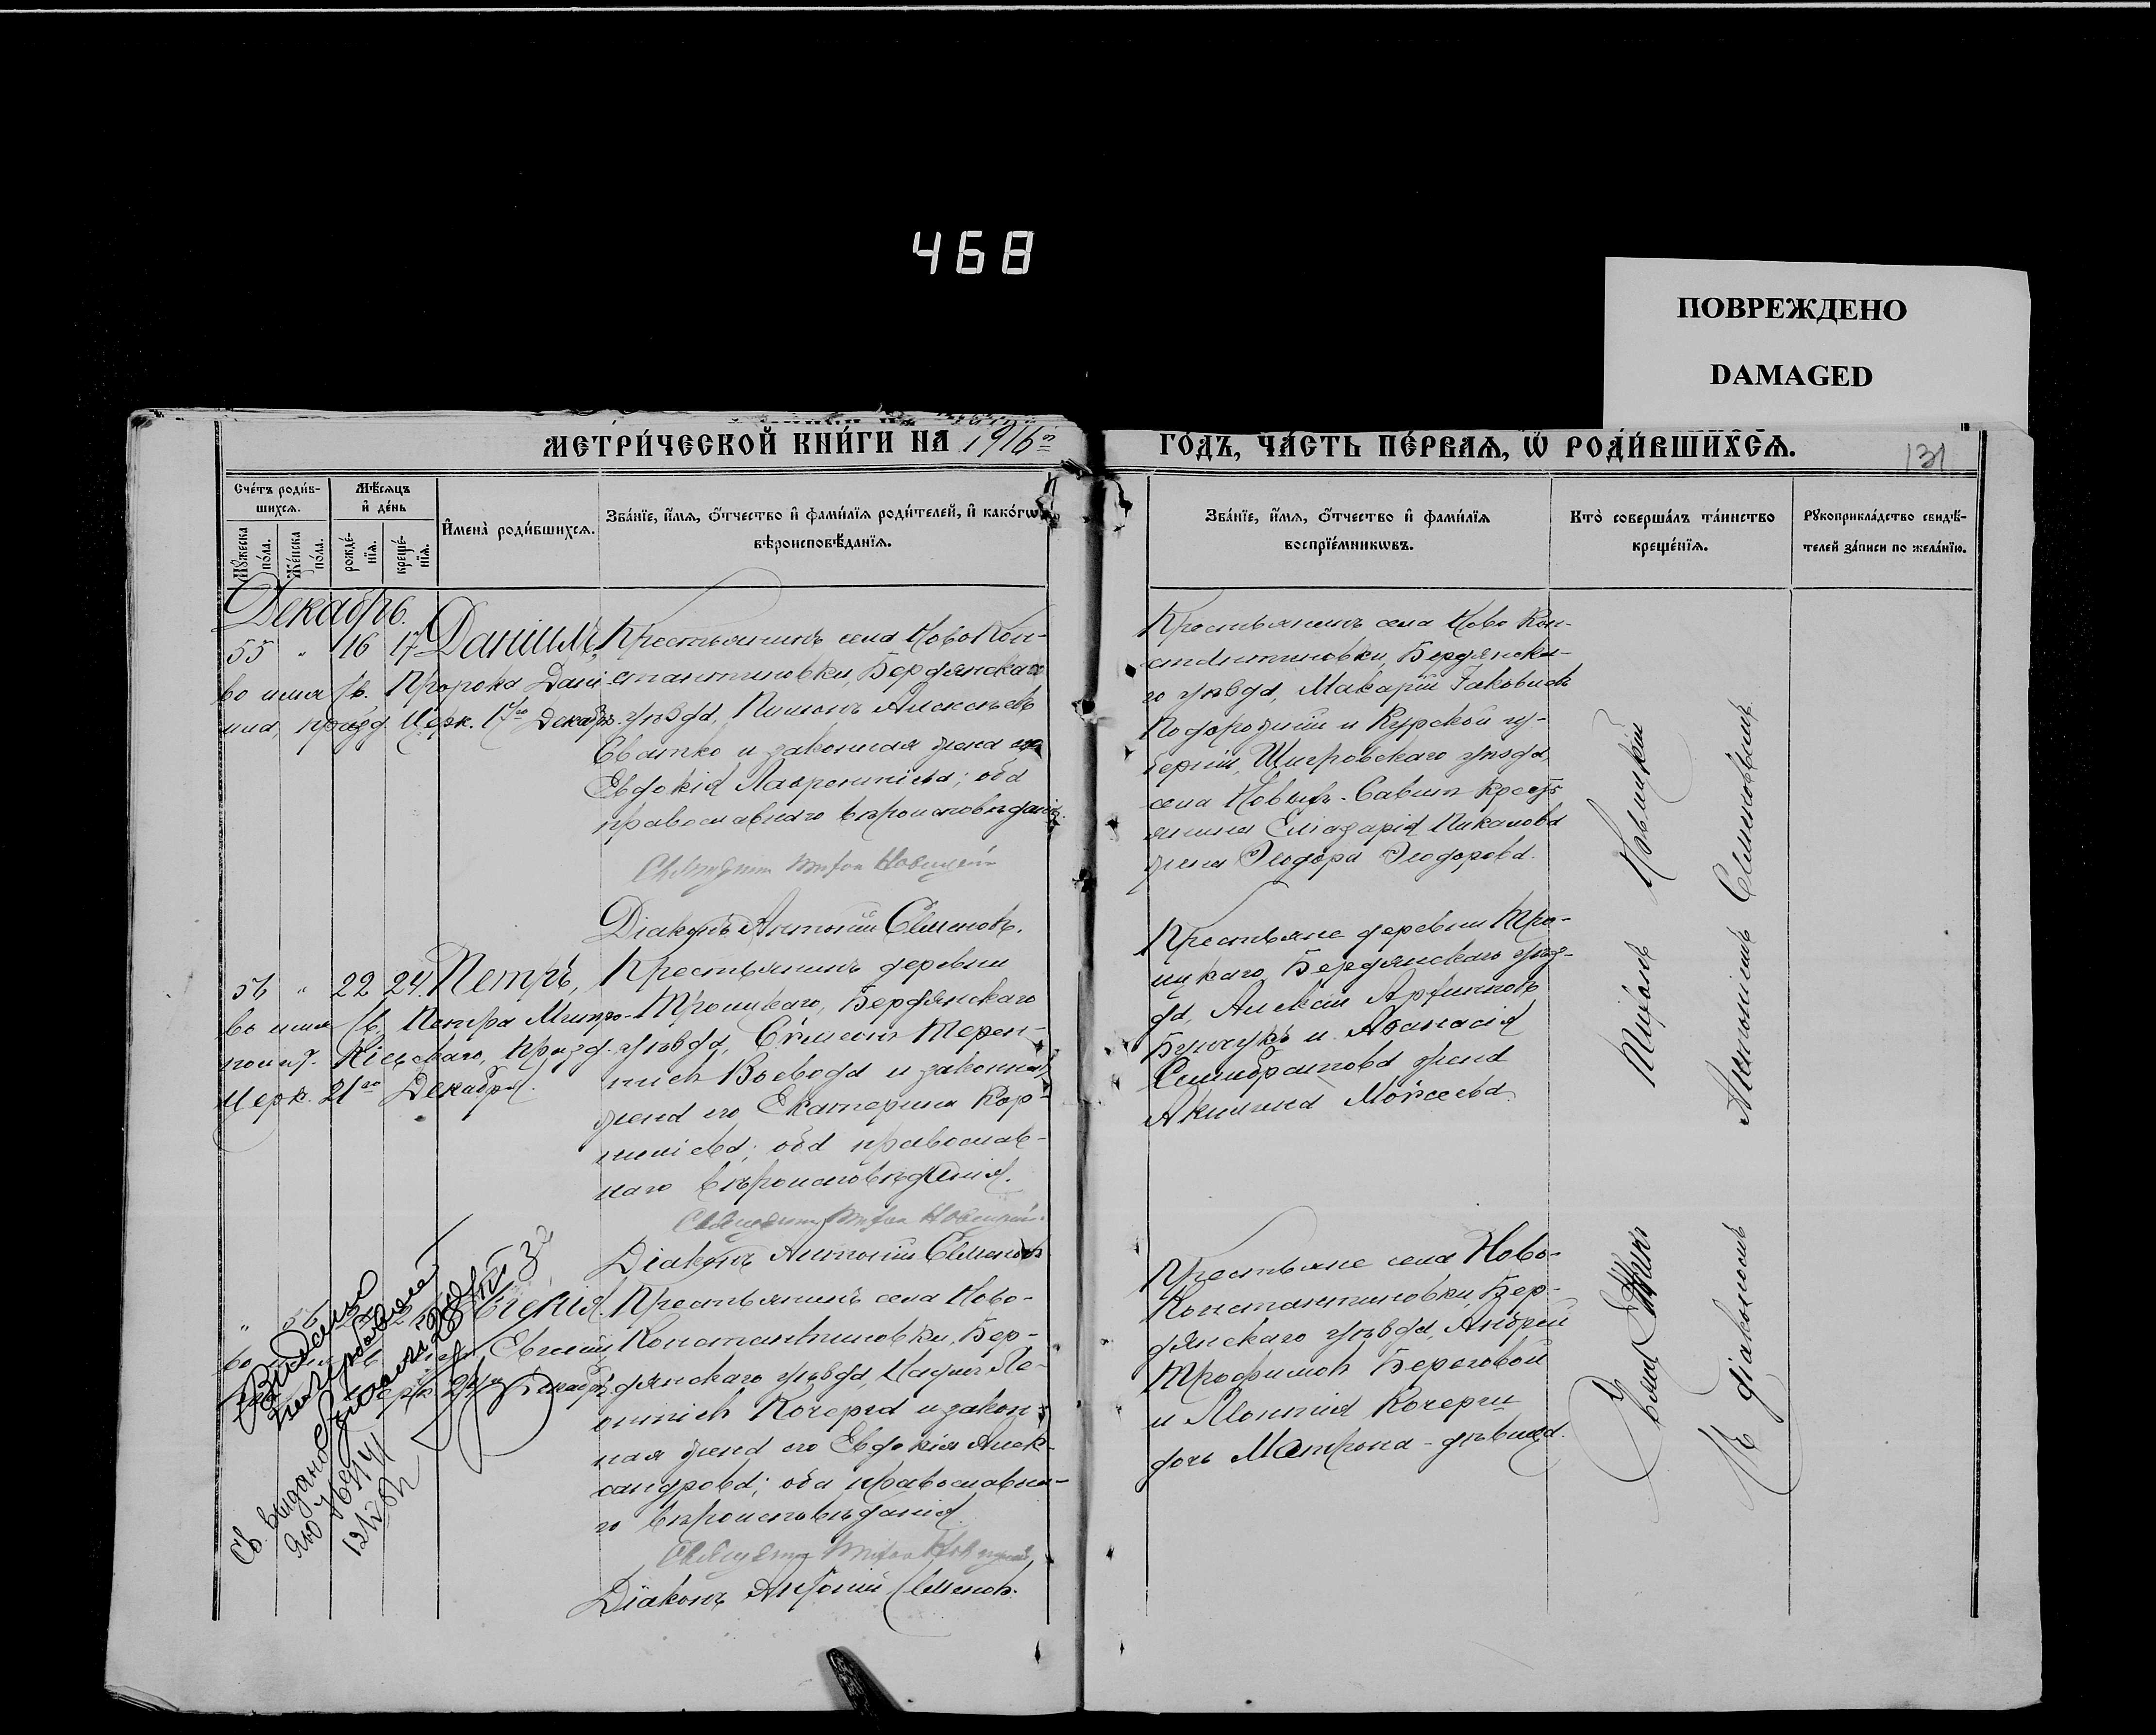 468
ПОВРЕЖДЕНО
DAMAGED
МЕТРИ́ЧЕСКОЙ КНИ́ГИ НА 1916й
ГО́ДЪ, ЧА́СТЬ ПЕ́РВАѦ, Ѽ РОДИ́ВШИХСѦ.
131
Сче́тъ роди́в-
шихсѧ.
Мѣ́сѧцъ
и҆ де́нь
Мꙋ́жеска
по́ла.
Же́нска
по́ла.
рожде́-
нїѧ.
креще́-
нїѧ.
И҆мена̀ роди́вшихсѧ.
Зва́нїе, и҆́мѧ, ѻ҆́тчество и҆ фами́лїѧ роди́телей, и҆ како́гѡ
вѣроисповѣ́данїѧ.
Зва́нїе, и҆́мѧ, ѻ҆́тчество и҆ фами́лїѧ
воспрїе́мникѡвъ.
Кто̀ соверша́лъ та́инство
креще́нїѧ.
Рꙋкоприкла́дство свидѣ́-
телей за́писи по жела́нїю.
Декабрь.
55 " 16 17 Даніилъ,
во имя св. Пророка Дані-
ила, празд. Церк. 17го Декабря.
Крестьянинъ села НовоКон-
стантиновки, Бердянскаго
уѣзда, Пименъ Алексѣевъ
Святко и законная жена его
Евдокія Лаврентіева; оба
православнаго вѣроисповѣданія.
Священникъ Тихон Новицкій
Діаконъ Антоній Семеновъ.
Крестьянинъ села Ново Кон-
стантиновки, Бердянска-
го уѣзда, Макарій Іаковлевъ
Подгородній и Курской гу-
берніи, Щигровскаго уѣзда,
села Новыхъ-Савинъ крест-
янина Елиазарія Пикалова
жена Ѳеодора Ѳеодорова.
56 " 22 24. Петръ,
во имя св. Петра Митро-
полит. Кіевскаго, празд.
Церк. 21го Декабря.
Крестьянинъ деревни
Троицкаго, Бердянскаго
уѣзда, Сѵмеонъ Терен-
тіевъ Воевода и законная
жена его Екатерина Кор-
ниліева; оба православ-
наго вѣроисповѣданія.
Священникъ Тихон Новицкій
Діаконъ Антоній Семеновъ
Крестьяне деревни Тро-
ицкаго, Бердянскаго уѣз-
да, Алексій
и Аѳанасія
жена
Акилина Моисеева.
Евгенія.
Евгеніи,
Декабря
Крестьянинъ села Ново-
Константиновки, Бер-
дянскаго уѣзда, Ле-
онтіевъ Кочерга и закон-
ная жена его Евдокія Алек-
сандрова; оба православна-
го вѣроисповѣданія.
Священникъ Тихон Новицкій
Діаконъ Антоній Семеновъ.
Крестьяне села Ново-
Константиновки, Бер-
дянскаго уѣзда, Андрей
Трофимовъ Береговой
и Леонтія Кочерги
дочь Матрона - дѣвица.
Тихонъ Новицкій
діакономъ Антоніемъ Семеновымъ.
Св. выдано